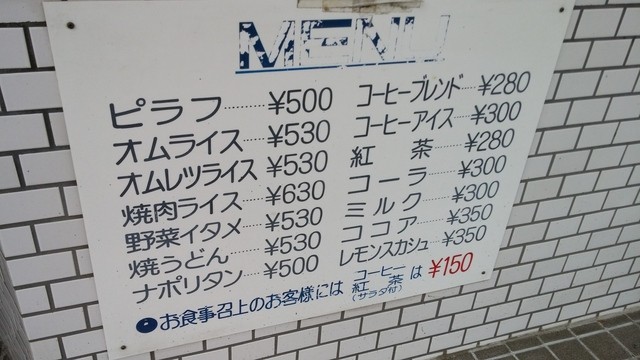 MENU
ピラフ………¥500
オムライス……¥530
オムレツライス…¥530
焼肉ライス……¥630
野菜イタメ……¥530
焼うどん………¥530
ナポリタン……¥500
コーヒーブレンド…¥280
コーヒーアイス…¥300
紅　茶………¥280
コーラ………¥300
ミルク………¥300
ココア………¥350
レモンスカッシュ…¥350
●お食事召上のお客様には コーヒー 紅茶 (サラダ付) は ¥150